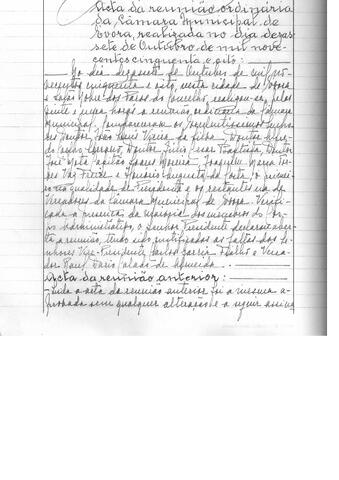 Acta da reunião ordinária
da Câmara Municipal de
Evora, realizada no dia dezas
sete de Outubro de mil nove-
centos cinquenta e oito:
No dia dezassete de Outubro de mil no-
vecentos cinquenta e oito, nesta cidade de Evora
e Salão Nobre dos Paços do Concelho, realizou-se, pelas
horas a reunião ordinária da Camara
Municipal. Compareceram os Excelentissimos Senho-
res Doutor João Luis Vieira da Silva, Doutor
Doutor Julio Cesar Baptista, Doutor
José Mota Capitão, Soares Moreira, Joaquim Maria
Vaz Freire e Honório Augusto da Costa, o primei-
ro na qualidade de Presidente e os restantes na de
Vereadores da Câmara Municipal de Evora. Verifi-
cada a presença da maioria dos membros do Cor-
po Administrativo, o Senhor Presidente declarou aber-
ta a reunião, tendo sido justificadas as faltas dos Se-
nhores Vice-Presidente Carlos Garcia e Verea-
dor de Almeida.
Acta da reunião anterior:
Lida a acta da reunião anterior foi a mesma a-
provada sem qualquer alteração e a seguir assina